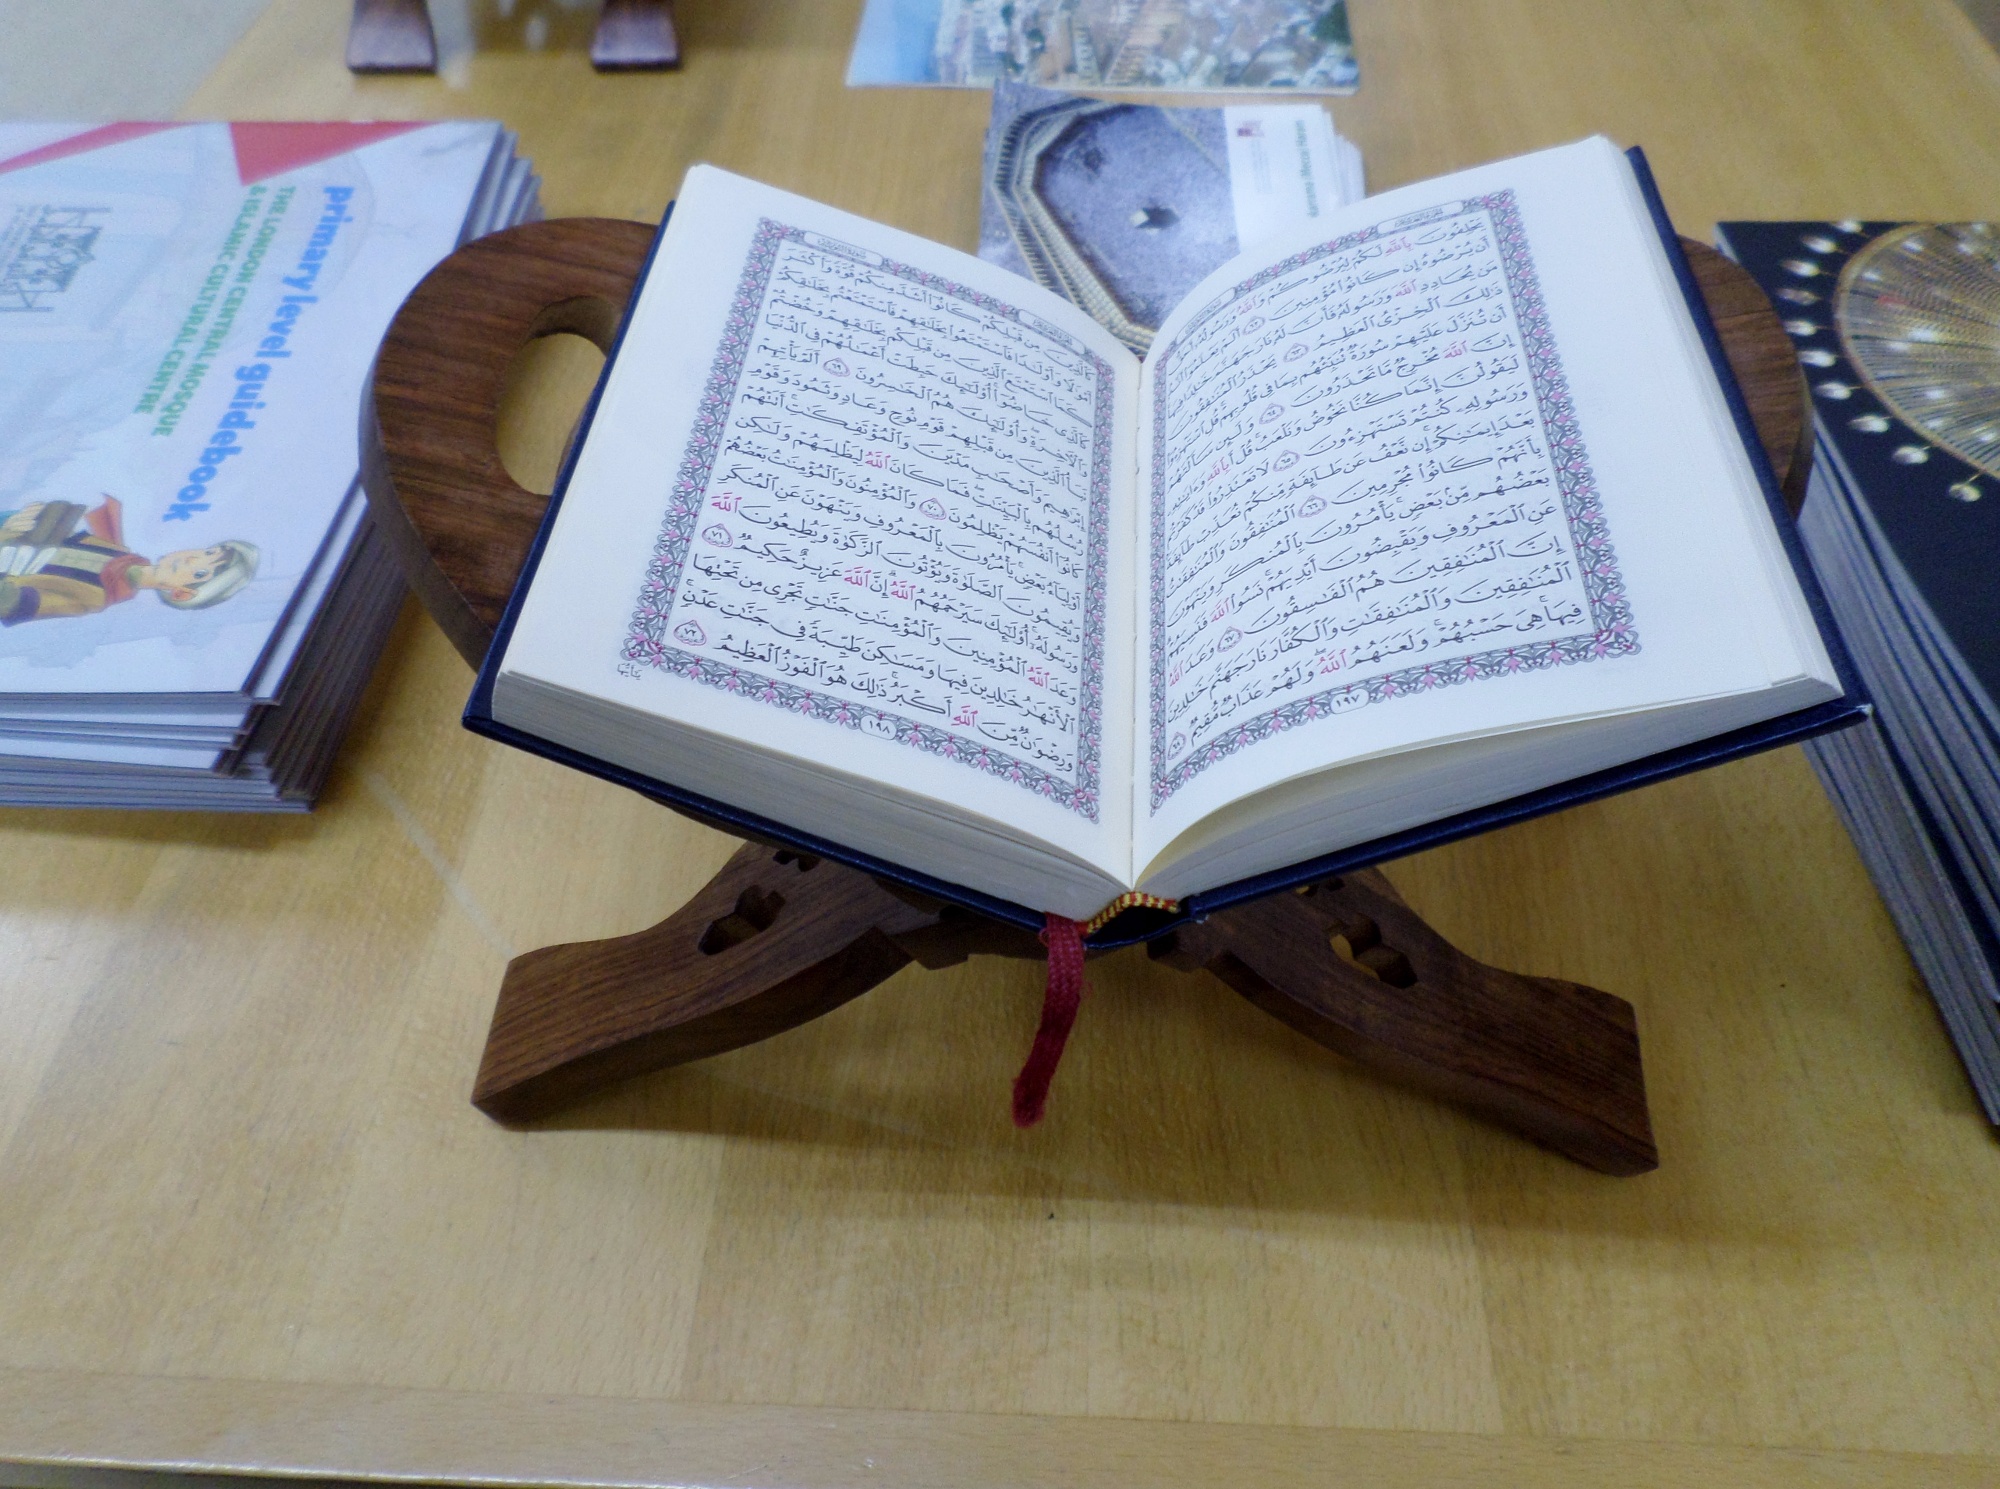 يَحْلِفُونَ بِٱللَّهِ لَكُمْ لِيُرْضُوكُمْ وَٱللَّهُ وَرَسُولُهُۥٓ أَحَقُّ
أَن يُرْضُوهُ إِن كَانُوا۟ مُؤْمِنِينَ ٦٢ أَلَمْ يَعْلَمُوٓا۟ أَنَّهُۥ
مَن يُحَادِدِ ٱللَّهَ وَرَسُولَهُۥ فَأَنَّ لَهُۥ نَارَ جَهَنَّمَ خَٰلِدًا فِيهَا
ذَٰلِكَ ٱلْخِزْىُ ٱلْعَظِيمُ ٦٣ يَحْذَرُ ٱلْمُنَٰفِقُونَ
أَن تُنَزَّلَ عَلَيْهِمْ سُورَةٌ تُنَبِّئُهُم بِمَا فِى قُلُوبِهِمْ قُلِ ٱسْتَهْزِءُوٓا۟
إِنَّ ٱللَّهَ مُخْرِجٌ مَّا تَحْذَرُونَ ٦٤ وَلَئِن سَأَلْتَهُمْ
لَيَقُولُنَّ إِنَّمَا كُنَّا نَخُوضُ وَنَلْعَبُ قُلْ أَبِٱللَّهِ وَءَايَٰتِهِۦ
وَرَسُولِهِۦ كُنتُمْ تَسْتَهْزِءُونَ ٦٥ لَا تَعْتَذِرُوا۟ قَدْ كَفَرْتُم
بَعْدَ إِيمَٰنِكُمْ إِن نَّعْفُ عَن طَآئِفَةٍ مِّنكُمْ نُعَذِّبْ طَآئِفَةًۢ
بِأَنَّهُمْ كَانُوا۟ مُجْرِمِينَ ٦٦ ٱلْمُنَٰفِقُونَ وَٱلْمُنَٰفِقَٰتُ
بَعْضُهُم مِّنۢ بَعْضٍ يَأْمُرُونَ بِٱلْمُنكَرِ وَيَنْهَوْنَ
عَنِ ٱلْمَعْرُوفِ وَيَقْبِضُونَ أَيْدِيَهُمْ نَسُوا۟ ٱللَّهَ فَنَسِيَهُمْ
إِنَّ ٱلْمُنَٰفِقِينَ هُمُ ٱلْفَٰسِقُونَ ٦٧ وَعَدَ ٱللَّهُ
ٱلْمُنَٰفِقِينَ وَٱلْمُنَٰفِقَٰتِ وَٱلْكُفَّارَ نَارَ جَهَنَّمَ خَٰلِدِينَ
فِيهَا هِىَ حَسْبُهُمْ وَلَعَنَهُمُ ٱللَّهُ وَلَهُمْ عَذَابٌ مُّقِيمٌ ٦٨
١٩٧
كَٱلَّذِينَ مِن قَبْلِكُمْ كَانُوٓا۟ أَشَدَّ مِنكُمْ قُوَّةً وَأَكْثَرَ
أَمْوَٰلًا وَأَوْلَٰدًا فَٱسْتَمْتَعُوا۟ بِخَلَٰقِهِمْ فَٱسْتَمْتَعْتُم بِخَلَٰقِكُمْ
كَمَا ٱسْتَمْتَعَ ٱلَّذِينَ مِن قَبْلِكُم بِخَلَٰقِهِمْ وَخُضْتُمْ
كَٱلَّذِى خَاضُوٓا۟ أُو۟لَٰٓئِكَ حَبِطَتْ أَعْمَٰلُهُمْ فِى ٱلدُّنْيَا
وَٱلْءَاخِرَةِ وَأُو۟لَٰٓئِكَ هُمُ ٱلْخَٰسِرُونَ ٦٩ أَلَمْ يَأْتِهِمْ
نَبَأُ ٱلَّذِينَ مِن قَبْلِهِمْ قَوْمِ نُوحٍ وَعَادٍ وَثَمُودَ وَقَوْمِ
إِبْرَٰهِيمَ وَأَصْحَٰبِ مَدْيَنَ وَٱلْمُؤْتَفِكَٰتِ أَتَتْهُمْ
رُسُلُهُم بِٱلْبَيِّنَٰتِ فَمَا كَانَ ٱللَّهُ لِيَظْلِمَهُمْ وَلَٰكِن
كَانُوٓا۟ أَنفُسَهُمْ يَظْلِمُونَ ٧٠ وَٱلْمُؤْمِنُونَ وَٱلْمُؤْمِنَٰتُ بَعْضُهُمْ
أَوْلِيَآءُ بَعْضٍ يَأْمُرُونَ بِٱلْمَعْرُوفِ وَيَنْهَوْنَ عَنِ ٱلْمُنكَرِ
وَيُقِيمُونَ ٱلصَّلَوٰةَ وَيُؤْتُونَ ٱلزَّكَوٰةَ وَيُطِيعُونَ ٱللَّهَ
وَرَسُولَهُۥٓ أُو۟لَٰٓئِكَ سَيَرْحَمُهُمُ ٱللَّهُ إِنَّ ٱللَّهَ عَزِيزٌ حَكِيمٌ ٧١
وَعَدَ ٱللَّهُ ٱلْمُؤْمِنِينَ وَٱلْمُؤْمِنَٰتِ جَنَّٰتٍ تَجْرِى مِن تَحْتِهَا
ٱلْأَنْهَٰرُ خَٰلِدِينَ فِيهَا وَمَسَٰكِنَ طَيِّبَةً فِى جَنَّٰتِ عَدْنٍ
وَرِضْوَٰنٌ مِّنَ ٱللَّهِ أَكْبَرُ ذَٰلِكَ هُوَ ٱلْفَوْزُ ٱلْعَظِيمُ ٧٢
يَٰٓأَيُّهَا
١٩٨
primary level guidebook
THE LONDON CENTRAL MOSQUE
& ISLAMIC CULTURAL CENTRE